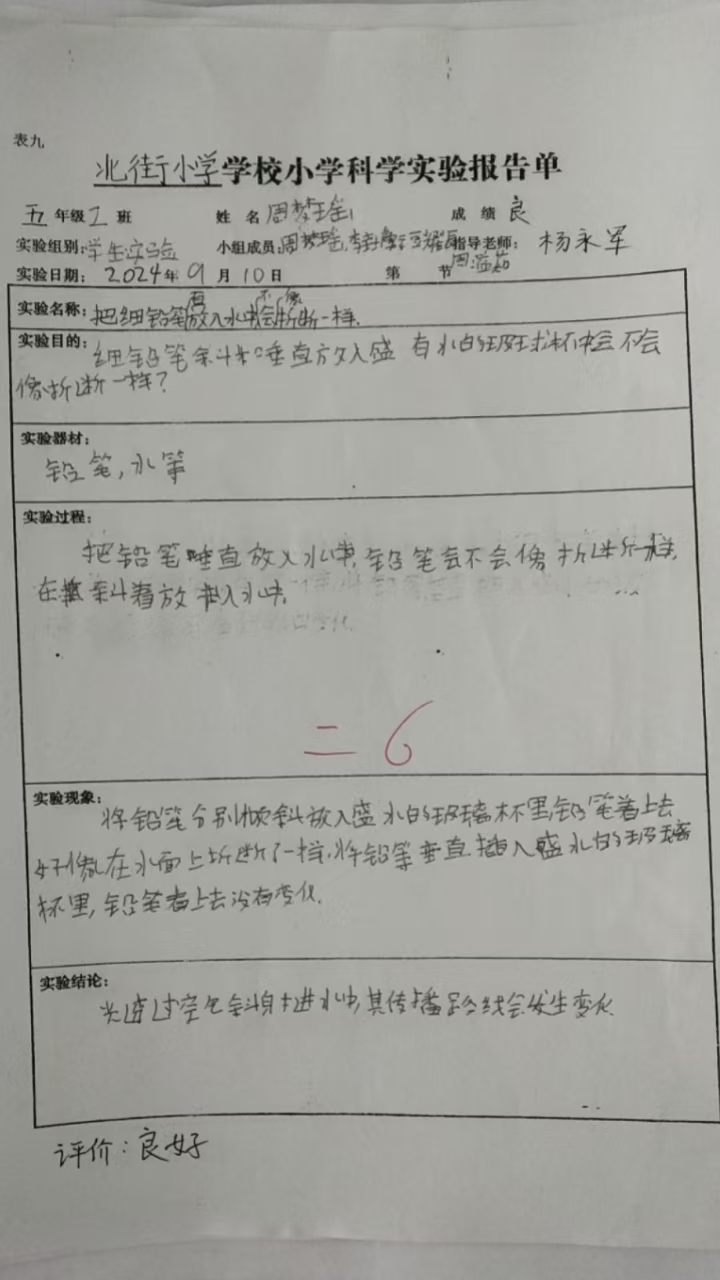 表九
北街小学学校小学科学实验报告单
五年级2班 姓名周梦瑶 成绩良
实验组别:学生实验 小组成员:周梦瑶, 指导老师:杨永军
实验日期:2024年9月10日 第 节
实验名称:把细铅笔放入水中会不会像折断一样.
实验目的:细铅笔斜和垂直放入盛有水的玻璃杯中会不会
像折断一样?
实验器材:
铅笔,水等
实验过程:
把铅笔垂直放入水中,铅笔会不会像折断一样,
在斜着放入水中.
二 6
实验现象:
将铅笔分别倾斜放入盛水的玻璃杯里,铅笔看上去
好像在水面上折断了一样,将铅笔垂直插入盛水的玻璃
杯里,铅笔看上去没有变化.
实验结论:
光透过空气斜射进水中,其传播路线会发生变化.
评价:良好